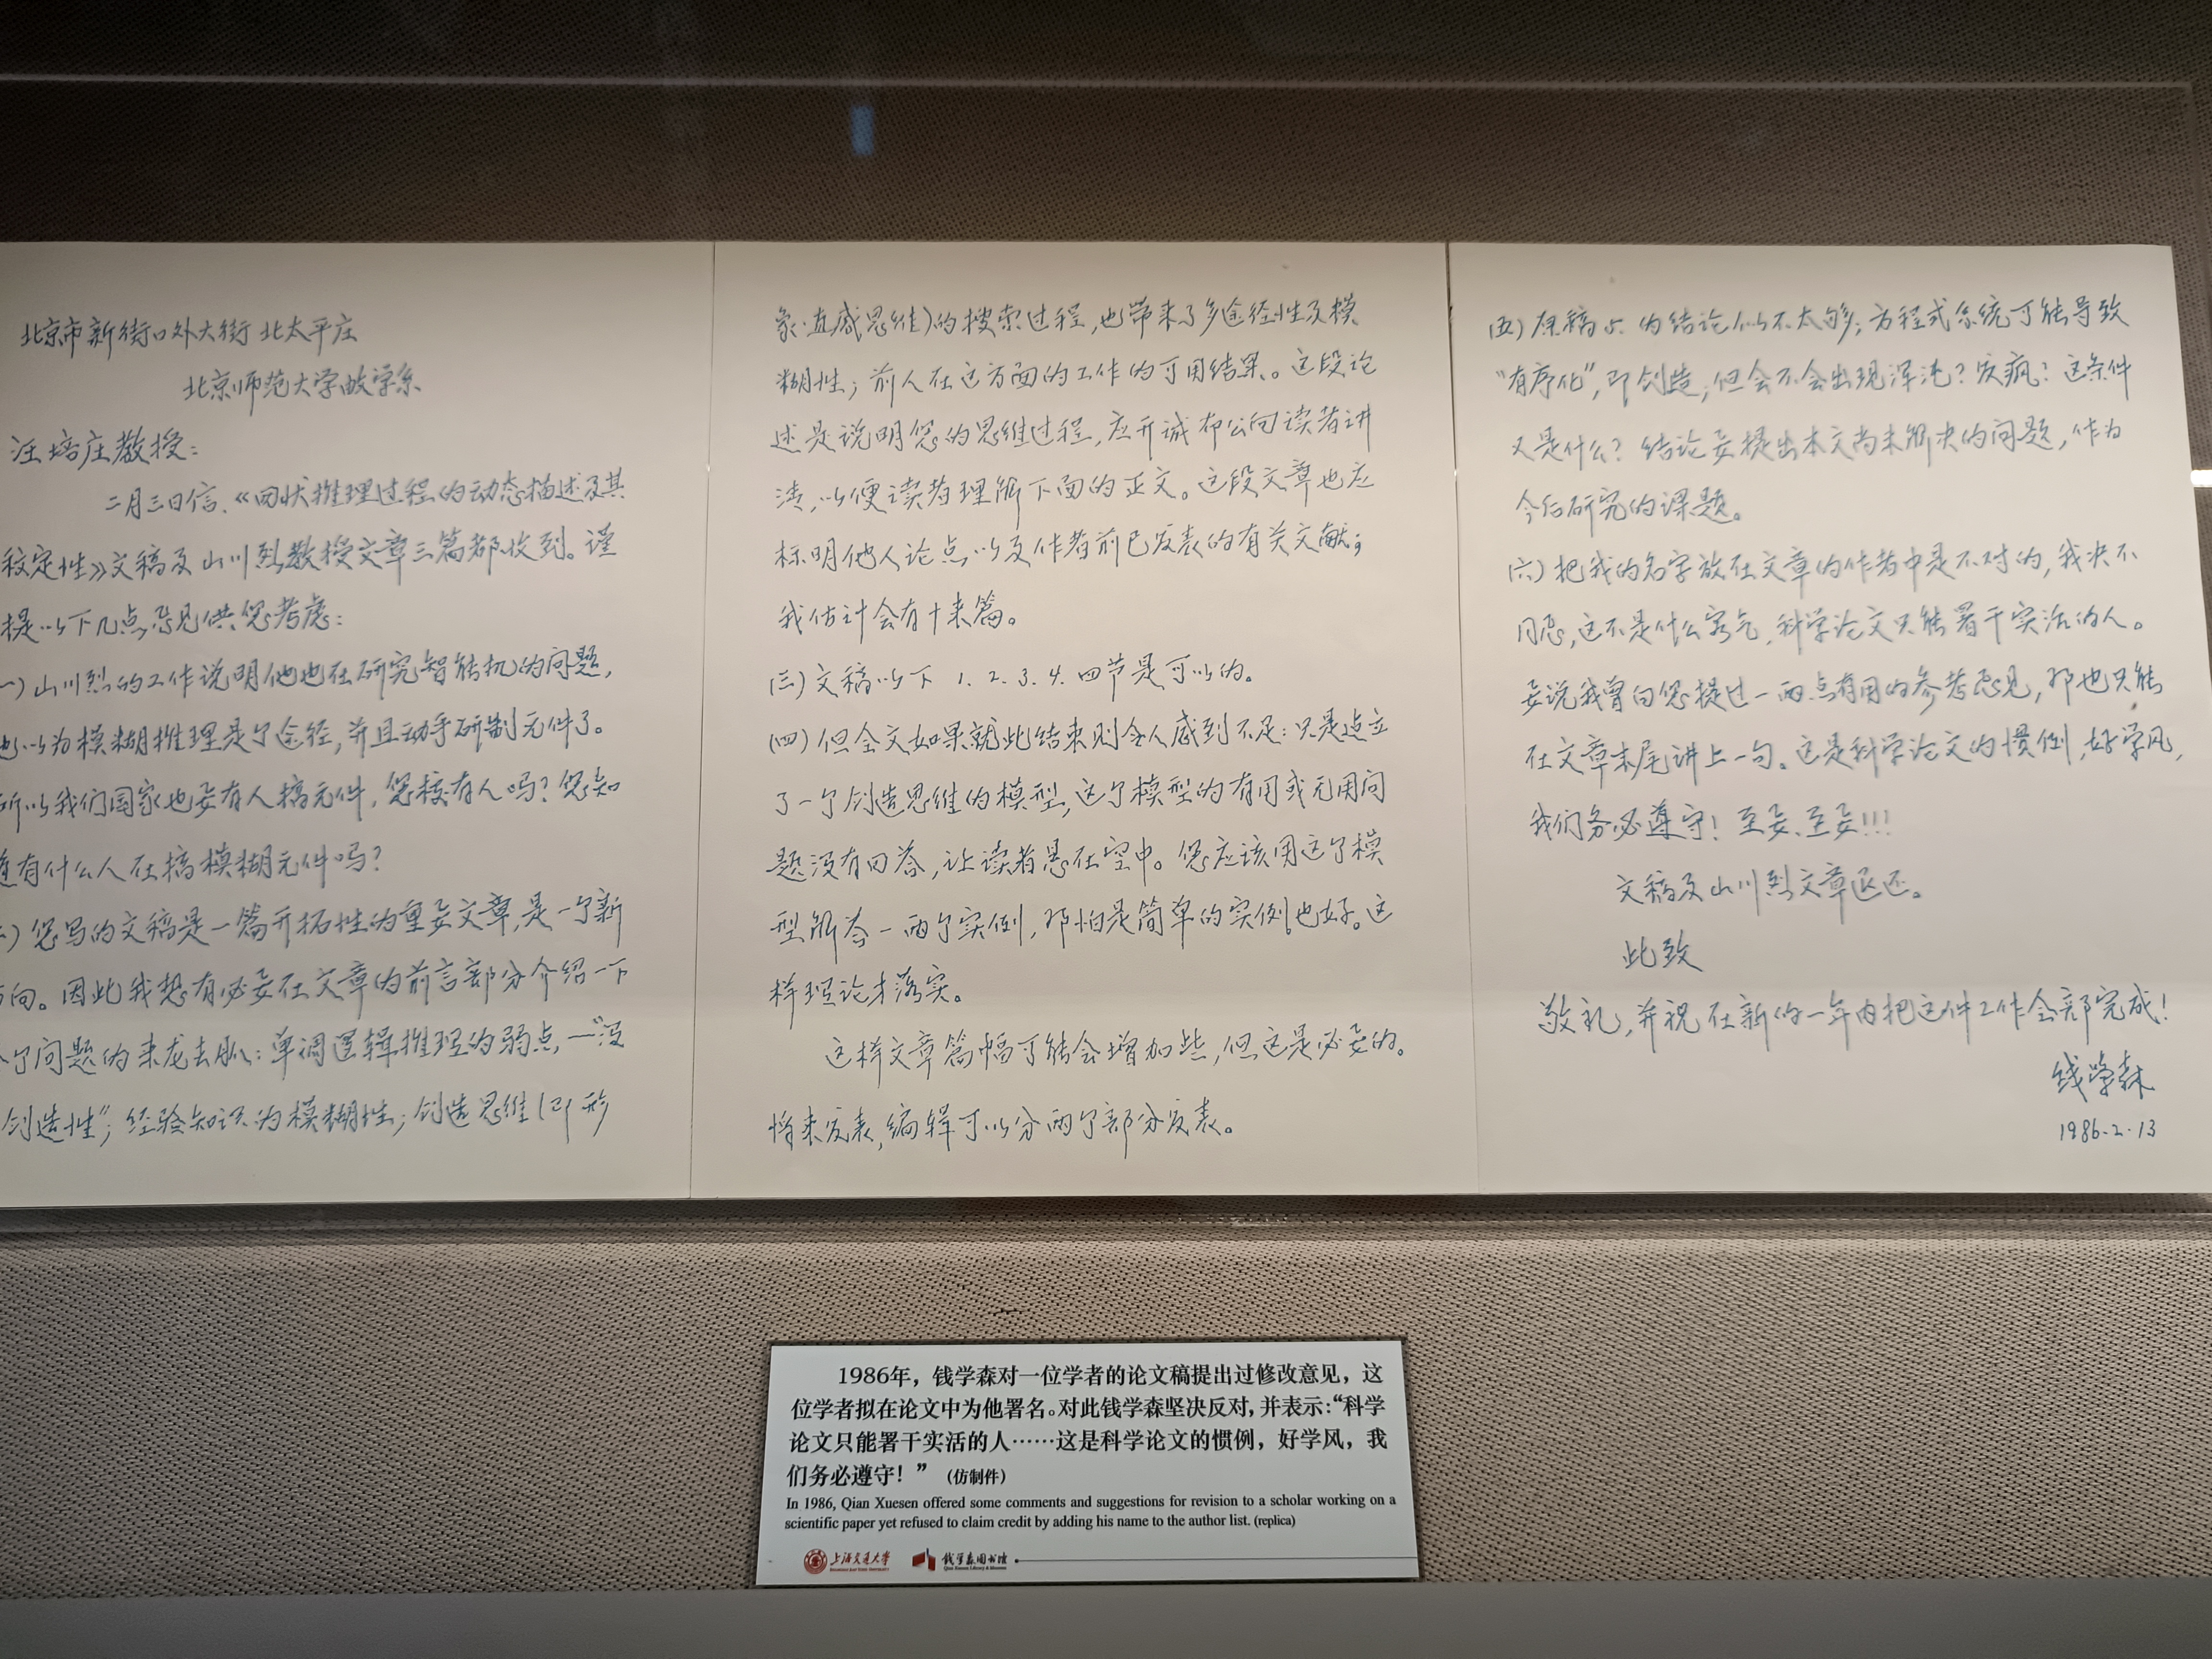 北京市新街口外大街 北太平庄
北京师范大学数学系
汪培庄教授：
二月三日信、《回状推理过程的动态描述及其
稳定性》文稿及山川烈教授文章三篇都收到。谨
提以下几点意见供您考虑：
一）山川烈的工作说明他也在研究智能机的问题，
也以为模糊推理是个途径，并且动手研制元件了。
所以我们国家也要有人搞元件，您校有人吗？您知
道有什么人在搞模糊元件吗？
二）您写的文稿是一篇开拓性的重要文章，是一个新
方向。因此我想有必要在文章的前言部分介绍一下
个问题的来龙去脉：单调逻辑推理的弱点，—“没
创造性”；经验知识的模糊性；创造思维（即形
象·直感思维）的搜索过程，也带来了多途径性及模
糊性；前人在这方面的工作的可用结果。这段论
述是说明您的思维过程，应开诚布公向读者讲
清，以便读者理解下面的正文。这段文章也应
标明他人论点以及作者前已发表的有关文献；
我估计会有十来篇。
（三）文稿以下 1. 2. 3. 4. 四节是可以的。
（四）但全文如果就此结束则令人感到不足：只是建立
了一个创造思维的模型，这个模型的有用或无用问
题没有回答，让读者悬在空中。您应该用这个模
型解答一两个实例，那怕是简单的实例也好。这
样理论才落实。
这样文章篇幅可能会增加些，但这是必要的。
将来发表，编辑可以分两个部分发表。
（五）原稿5. 的结论似不太够；方程式系统可能导致
“有序化”，即创造，但会不会出现浑沌？发疯？这条件
又是什么？结论要提出本文尚未解决的问题，作为
今后研究的课题。
（六）把我的名字放在文章的作者中是不对的，我决不
同意，这不是什么客气，科学论文只能署干实活的人。
要说我曾向您提过一两点有用的参考意见，那也只能
在文章末尾讲上一句。这是科学论文的惯例，好学风，
我们务必遵守！至要、至要！！！
文稿及山川烈文章退还。
此致
敬礼，并祝在新的一年内把这件工作全部完成！
钱学森
1986.2.13
1986年，钱学森对一位学者的论文稿提出过修改意见，这
位学者拟在论文中为他署名。对此钱学森坚决反对，并表示：“科学
论文只能署干实活的人……这是科学论文的惯例，好学风，我
们务必遵守！”（仿制件）
In 1986, Qian Xuesen offered some comments and suggestions for revision to a scholar working on a
scientific paper yet refused to claim credit by adding his name to the author list. (replica)
上海交通大学
SHANGHAI JIAO TONG UNIVERSITY
钱学森图书馆
Qian Xuesen Library & Museum